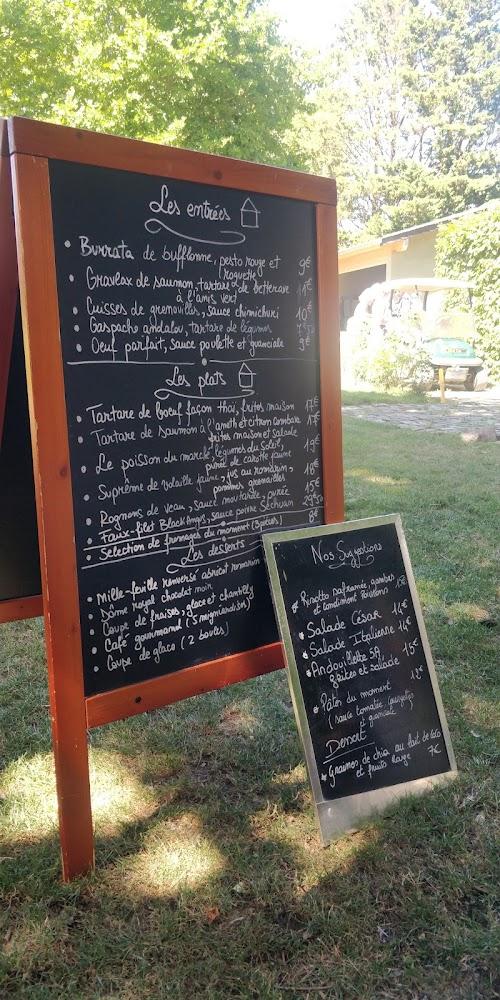 Les entrées
• Burrata de bufflonne, pesto rouge et
roquette 9€
• Gravlax de saumon, tartare de betterave
à l'anis vert 11€
• Cuisses de grenouilles, sauce chimichuri 10€
• Gaspacho andalou, tartare de légumes 7€50
• Oeuf parfait, sauce poulette et guanciale 9€
Les plats
• Tartare de boeuf façon thaï, frites maison 17€
• Tartare de saumon à l'aneth et citron combava 17€
frites maison et salade
• Le poisson du marché, légumes du Soleil, 19€
purée de carotte jaune
• Suprême de volaille jaune, jus au romarin, 18€
pommes grenailles
• Rognons de veau, sauce moutarde, purée 15€
• Faux-filet Black Angus, sauce poivre Sechuan 29€50
• Sélection de fromages du moment (3 pièces) 8€
Les desserts
• Mille-feuille renversé abricot romarin
• Dôme royal chocolat noir
• Coupe de fraises, glace et chantilly
• Café gourmand (5 mignardises)
• Coupe de glace (2 boules)
Nos Suggestions
Risotto safranée, gambas
et condiment Poivrons
Salade César 14€
Salade Italienne 14€
Andouillette 5A, 15€
frites et salade
Pâtes du moment
(sauce tomatée, courgettes
et guanciale
Dessert
Graines de chia au lait de coco
et fruits Rouge 7€